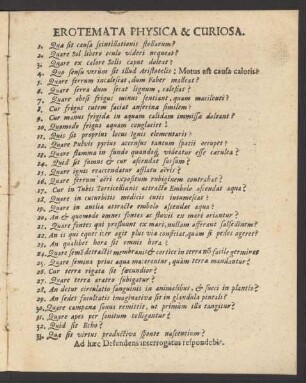 EROTEMATA PHYSICA & CURIOSA.
1. Quæ sit causa scintillationis stellarum?
2. Quare Sol libero oculo videri nequeat?
3. Quare ex calore Solis caput doleat?
4. Quo sensu verum sit illud Aristotelis: Motus est causa caloris?
5. Quare ferrum incalescat, dum Faber malleat?
6. Quare serra dum secat lignum, calefiat?
7. Quare obesi frigus minus sentiant, quam macilenti?
8. Cur frigus cutem faciat anserinæ similem?
9. Cur manus frigida in aquam calidam immissa doleant?
10. Quomodo frigus aquam conglaciet?
11. Quis sit proprius locus Ignis elementaris?
12. Quare Pulvis pyrius accensus tantum spatii occupet?
13. Quare flamma in fundo quandoq; videatur esse cærulea?
14. Quid sit fumus & cur ascendat sursum?
15. Quare ignis exacerbetur afflatu aëris?
16. Quare ferrum aëri expositum rubiginem contrahat?
17. Cur in Tubis Torricellianis attracto Embolo ascendat aqua?
18. Quare in cucurbitis medicis cutis intumescat?
19. Quare in antlia attracto embolo ascendat aqua?
20. An & quomodo omnes fontes ac fluvii ex mari oriantur?
21. Quare fontes qui profluunt ex mari, nullam afferant salsedinem?
22. An is qui equo iter agit plus via conficiat, quam si pedes ageret?
23. An qualibet hora sit omnis hora?
24. Quare semẽ detractis membranis & cortice in terra nõ facile germinet
25. Quare semina prius aqua macerentur, quam terræ mandantur?
26. Cur terra rigata sit fœcundior?
27. Quare terra aratro subigatur?
28. An detur circulatio sanguinis in animalibus, & succi in plantis?
29. An sedes facultatis imaginativæ sit in glandula pineali?
30. Quare campana sonus remittit, ut primùm illa tangitur?
31. Quare apes per sonitum colligantur?
32. Quid sit Echo?
33. Quæ sit virtus productiva sponte nascentium?
Ad hæc Defendens interrogatus respondebit.